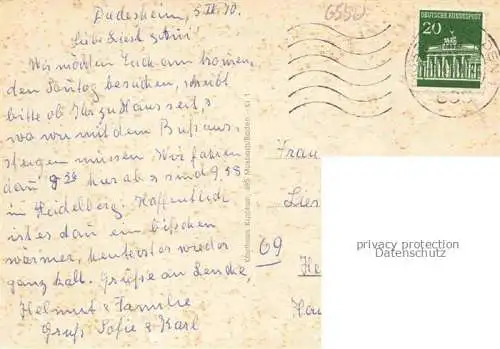 Dudesheim, 5.IV.70.
Liebe Liesel u. Otti!
Wir möchten Euch am kommen
den Sontag besuchen, schreibt
bitte ob Ihr zu Haus seit, &
wo wir mit dem Buß aus
steigen müssen. Wir fahren
dan 8 36 hier ab & sind 9,58
in Heidelberg. Hoffentlich
ist es dan ein bißchen
wärmer, heute ist es wieder
ganz kalt. Grüße an
Helmut & Familie
Gruß Sofie & Karl
6950
DEUTSCHE BUNDESPOST
20
Frau
Lies
69
He
Hau
privacy protection
Datenschutz